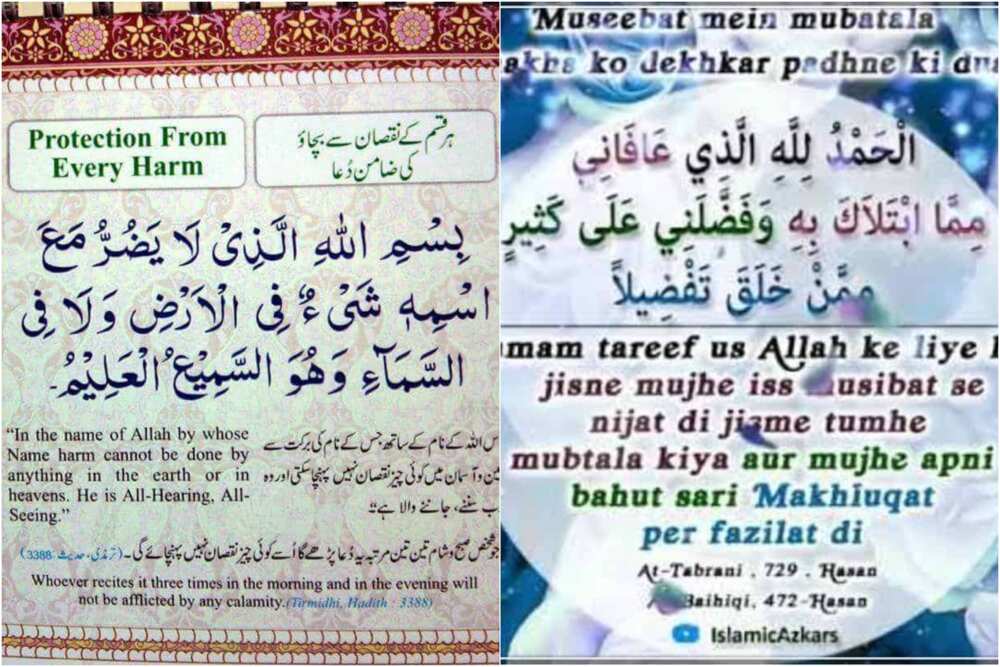 Protection From
Every Harm
ہر قسم کے نقصان سے بچاؤ
کی ضامن دُعا
بِسْمِ اللهِ الَّذِىْ لَا يَضُرُّ مَعَ
اسْمِهٖ شَىْءٌ فِى الْاَرْضِ وَلَا فِى
السَّمَآءِ وَهُوَ السَّمِيْعُ الْعَلِيْمُ۔
“In the name of Allah by whose
Name harm cannot be done by
anything in the earth or in
heavens. He is All-Hearing, All-
Seeing.”
اللہ کے نام کے ساتھ جس کے نام کی برکت سے
و آسمان میں کوئی چیز نقصان نہیں پہنچا سکتی اور وہ
سننے، جاننے والا ہے“
جو شخص صبح و شام تین تین مرتبہ یہ دُعا پڑھے گا اُسے کوئی چیز نقصان نہیں پہنچائے گی۔ (ترمذی، حدیث: 3388)
Whoever recites it three times in the morning and in the evening will
not be afflicted by any calamity.(Tirmidhi, Hadith : 3388)
Museebat mein mubatala
ko dekhkar padhne ki
الْحَمْدُ لِلَّهِ الَّذِي عَافَانِي
مِمَّا ابْتَلاَكَ بِهِ وَفَضَّلَنِي عَلَى كَثِيرٍ
مِمَّنْ خَلَقَ تَفْضِيلاً
mam tareef us Allah ke liye
jisne mujhe iss usibat se
nijat di jisme tumhe
mubtala kiya aur mujhe apni
bahut sari Makhluqat
per fazilat di
At-Tabrani , 729 , Hasan
Baihiqi, 472-Hasan
IslamicAzkars